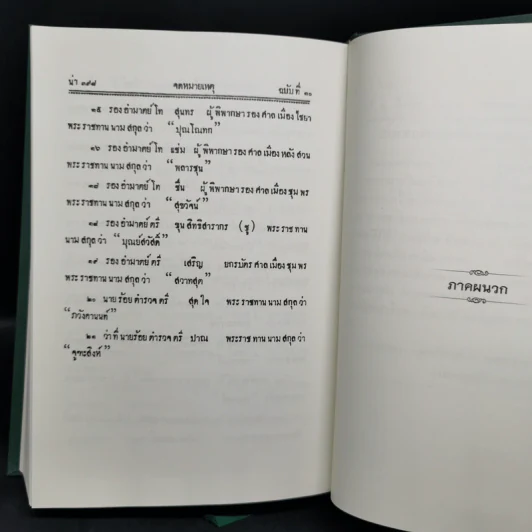 น่า ๓๙๘ จดหมายเหตุ ฉบับที่ ๓๑
๑๕ รองอำมาตย์โท สุนทร ผู้พิพากษารองศาลเมืองไชยา
พระราชทานนามสกุลว่า “ปุณโณทก”
๑๖ รองอำมาตย์โท แช่ม ผู้พิพากษารองศาลเมืองหลังสวน
พระราชทานนามสกุลว่า “พลารชุน”
๑๗ รองอำมาตย์โท ชื่น ผู้พิพากษารองศาลเมืองชุมพร
พระราชทานนามสกุลว่า “สุขวัจน์”
๑๘ รองอำมาตย์ตรี ขุนสิทธิสารากร (ชู) พระราชทาน
นามสกุลว่า “บุณย์สวัสดิ์”
๑๙ รองอำมาตย์ตรี เสริญ ยกรบัตรศาลเมืองชุมพร
พระราชทานนามสกุลว่า “สวาทสุต”
๒๐ นายร้อยตำรวจตรี สุดใจ พระราชทานนามสกุลว่า
“ภวังคานนท์”
๒๑ ว่าที่นายร้อยตำรวจตรี ปาณ พระราชทานนามสกุลว่า
“จูฑะสิงห์”
ภาคผนวก